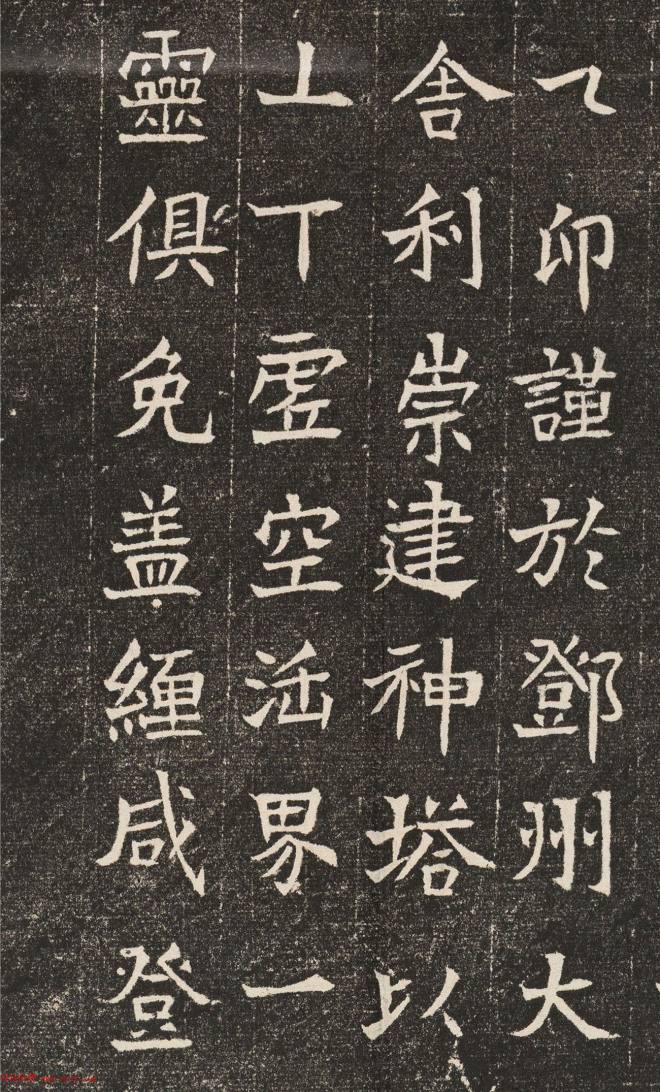 乙卯謹於鄧州大
舍利崇建神塔以
上下虛空法界一
靈俱免盖纏咸登